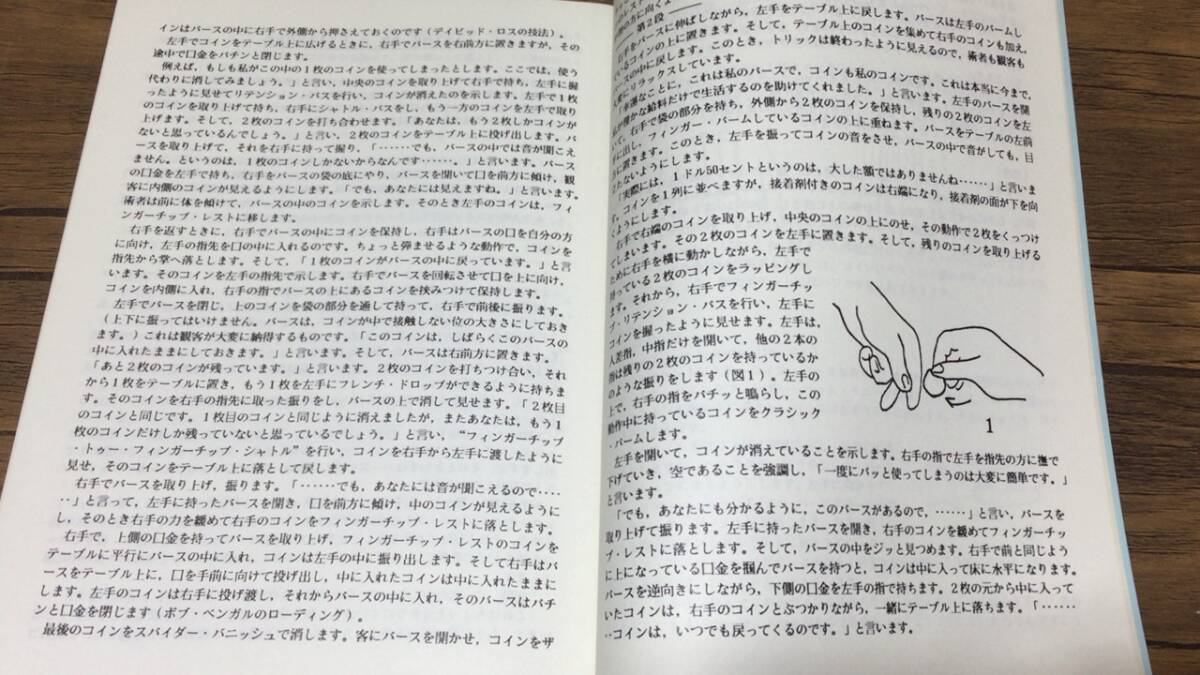 インはパースの中に右手で外側から押さえておくのです(デイビッド・ロスの技法)。
左手でコインをテーブル上に広げるときに，右手でパースを右前方に置きますが，その
途中で口金をパチンと閉じます。
例えば，もしも私がこの中の1枚のコインを使ってしまったとします。ここでは，使う
代わりに消してみましょう。」と言い，中央のコインを取り上げて右手で持ち，左手に握
ったように見せてリテンション・パスを行い，コインが消えたのを示します。左手で1枚
のコインを取り上げて持ち，右手にシャトル・パスをし，もう一方のコインを左手で取り
上げます。そして，2枚のコインを打ち合わせます。「あなたは，もう2枚しかコインが
ないと思っているんでしょう。」と言い，2枚のコインをテーブル上に投げ出します。パー
スを取り上げて，それを右手に持って握り，「……でも，パースの中では音が聞こえ
ません。というのは，1枚のコインしかないからなんです……。」と言います。パース
の口金を左手で持ち，右手をパースの袋の底にやり，パースを開いて口を前方に傾け，観
客に内側のコインが見えるようにします。「でも，あなたには見えますね。」と言います。
術者は前に体を傾けて，パースの中のコインを示します。そのとき左手のコインは，フィ
ンガーチップ・レストに移します。
右手を返すときに，右手でパースの中にコインを保持し，右手はパースの口を自分の方
に向け，左手の指先を口の中に入れるのです。ちょっと弾ませるような動作で，コインを
指先から掌へ落とします。そして，「1枚のコインがパースの中に戻っています。」と言い
ます。そのコインを左手の指先で示します。右手でパースを回転させて口を上に向け，
コインを内側に入れ，右手の指でパースの上にあるコインを挟みつけて保持します。
左手でパースを閉じ，上のコインを袋の部分を通して持って，右手で前後に振ります。
(上下に振ってはいけません。パースは，コインが中で接触しない位の大きさにしておき
ます。)これは観客が大変に納得するものです。「このコインは，しばらくこのパースの
中に入れたままにしておきます。」と言います。そして，パースは右前方に置きます。
「あと2枚のコインが残っています。」と言います。2枚のコインを打ちつけ合い，それ
から1枚をテーブルに置き，もう1枚を左手にフレンチ・ドロップができるように持ちま
す。そのコインを右手の指先に取った振りをし，パースの上で消して見せます。「2枚目
のコインと同じです。1枚目のコインと同じように消えましたが，またあなたは，もう1
枚のコインだけしか残っていないと思っているでしょう。」と言い，“フィンガーチップ
・トゥー・フィンガーチップ・シャトル”を行い，コインを右手から左手に渡したように
見せ，そのコインをテーブル上に落として戻します。
右手でパースを取り上げ，振ります。「……でも，あなたには音が聞こえるので……
……」と言って，左手に持ったパースを開き，口を前方に傾け，中のコインが見えるように
し，そのとき右手の力を緩めて右手のコインをフィンガーチップ・レストに落とします。
右手で，上側の口金を持ってパースを取り上げ，フィンガーチップ・レストのコインを
テーブルに平行にパースの中に入れ，コインは左手の中に振り出します。そして右手はパ
ースをテーブル上に，口を手前に向けて投げ出し，中に入れたコインは中に入れたままに
します。左手のコインは右手に投げ渡し，それからパースの中に入れ，そのパースはパチ
ンと口金を閉じます(ボブ・ベンガルのローディング)。
最後のコインをスパイダー・バニッシュで消します。客にパースを開かせ，コインをザ
の方に向くよ
第2段
手をパースに伸ばしながら，左手をテーブル上に戻します。パースは左手のパームし
るコインの上に置きます。そして，テーブル上のコインを集めて右手のコインも加え，
スの中に戻します。このとき，トリックは終わったように見えるので，術者も観客も
にリラックスしています。
「幸運なことに，これは私のパースで，コインも私のコインです。これは本当に今まで，
僅かな給料だけで生活するのを助けてくれました。」と言います。左手のパースを開
いて，右手で袋の部分を持ち，外側から2枚のコインを保持し，残りの2枚のコインを左
に出し，フィンガー・パームしているコインの上に重ねます。パースをテーブルの左前
に置きます。このとき，左手を振ってコインの音をさせ，パースの中で音がしても，目
たないようにします。
「実際には，1ドル50セントというのは，大した額ではありませんね……」と言いま
す。コインを1列に並べますが，接着剤付きのコインは右端になり，接着剤の面が下を向
くようにします。
右手で右端のコインを取り上げ，中央のコインの上にのせ，その動作で2枚をくっつけ
てしまいます。その2枚のコインを左手に置きます。そして，残りのコインを取り上げる
ために右手を横に動かしながら，左手で
持っている2枚のコインをラッピングし
ます。それから，右手でフィンガーチッ
プ・リテンション・パスを行い，左手に
コインを握ったように見せます。左手は，
人差指，中指だけを開いて，他の2本の
指は残りの2枚のコインを持っているか
のような振りをします(図1)。左手の
上で，右手の指をパチっと鳴らし，この
動作中に持っているコインをクラシック
・パームします。
1
左手を開いて，コインが消えていることを示します。右手の指で左手を指先の方に撫で
下げていき，空であることを強調し，「一度にパッと使ってしまうのは大変に簡単です。」
と言います。
「でも，あなたにも分かるように，このパースがあるので，……」と言い，パースを
取り上げて振ります。左手に持ったパースを開き，右手のコインを緩めてフィンガーチッ
プ・レストに落とします。そして，パースの中をジッと見つめます。右手で前と同じよう
に上になっている口金を掴んでパースを持つと，コインは中に入って床に水平になります。
パースを逆向きにしながら，下側の口金を左手の指で持ちます。2枚の元から中に入って
いたコインは，右手のコインとぶつかりながら，一緒にテーブル上に落ちます。「……
‥コインは，いつでも戻ってくるのです。」と言います。